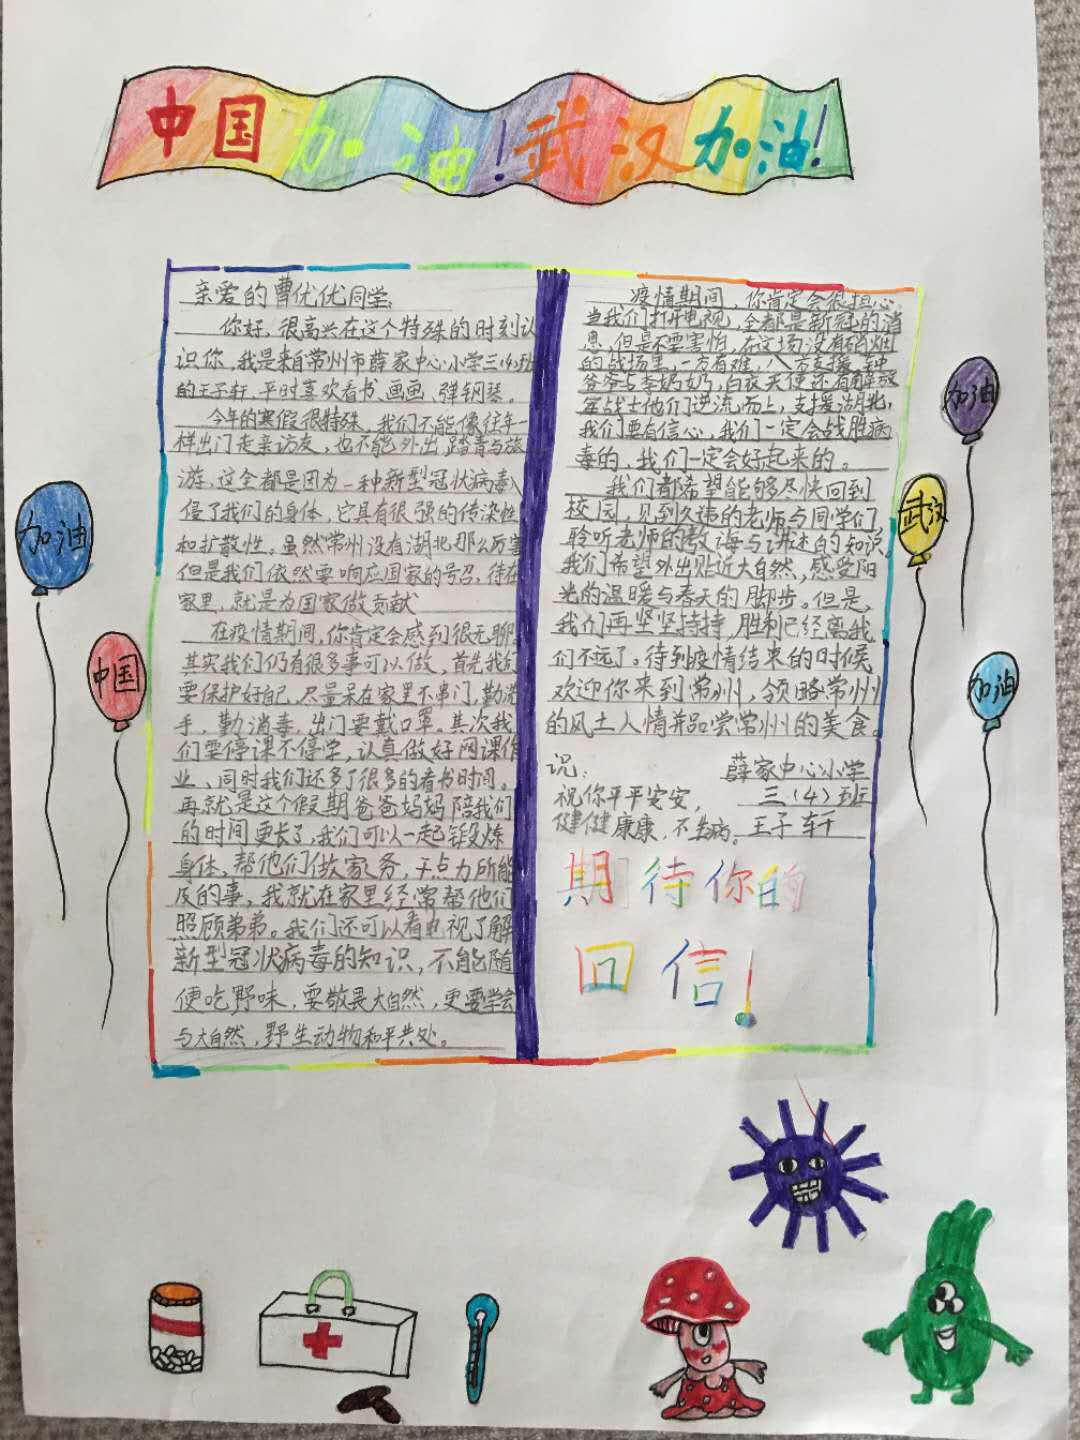 中国加油!武汉加油!
亲爱的曹优优同学:
你好,很高兴在这个特殊的时刻认
识你,我是来自常州市薛家中心小学三(4)班
的王子轩,平时喜欢看书、画画、弹钢琴。
今年的寒假很特殊,我们不能像往年一
样出门走亲访友,也不能外出踏青与旅
游,这全都是因为一种新型冠状病毒入
侵了我们的身体,它具有很强的传染性
和扩散性。虽然常州没有湖北那么厉害
但是我们依然要响应国家的号召,待在
家里,就是为国家做贡献
在疫情期间,你肯定会感到很无聊。
其实我们仍有很多事可以做,首先我们
要保护好自己,尽量呆在家里不串门,勤洗
手,勤消毒,出门要戴口罩。其次我
们要停课不停学,认真做好网课作
业、同时我们还多了很多的看书时间。
再就是这个假期爸爸妈妈陪我们
的时间更长了,我们可以一起锻炼
身体,帮他们做家务,干点力所能
及的事,我就在家里经常帮他们
照顾弟弟。我们还可以看电视了解
新型冠状病毒的知识,不能随
便吃野味,要敬畏大自然,更要学会
与大自然,野生动物和平共处。
疫情期间,你肯定会很担心。
当我们打开电视,全都是新冠的消
息,但是不要害怕,在这场没有硝烟
的战场里,一方有难,八方支援,钟
爷爷与李奶奶,白衣天使还有解放
军战士他们逆流而上,支援湖北,
我们要有信心,我们一定会战胜病
毒的,我们一定会好起来的。
我们都希望能够尽快回到
校园,见到久违的老师与同学们,
聆听老师的教诲与讲述的知识。
我们希望外出贴近大自然,感受阳
光的温暖与春天的脚步。但是,
我们再坚坚持持,胜利已经离我
们不远了。待到疫情结束的时候
欢迎你来到常州,领略常州
的风土人情并品尝常州的美食。
祝:
祝你平平安安,
健健康康,不生病。
薛家中心小学
三(4)班
王子轩
期待你的
回信!
加油
中国
加油
武汉
加油